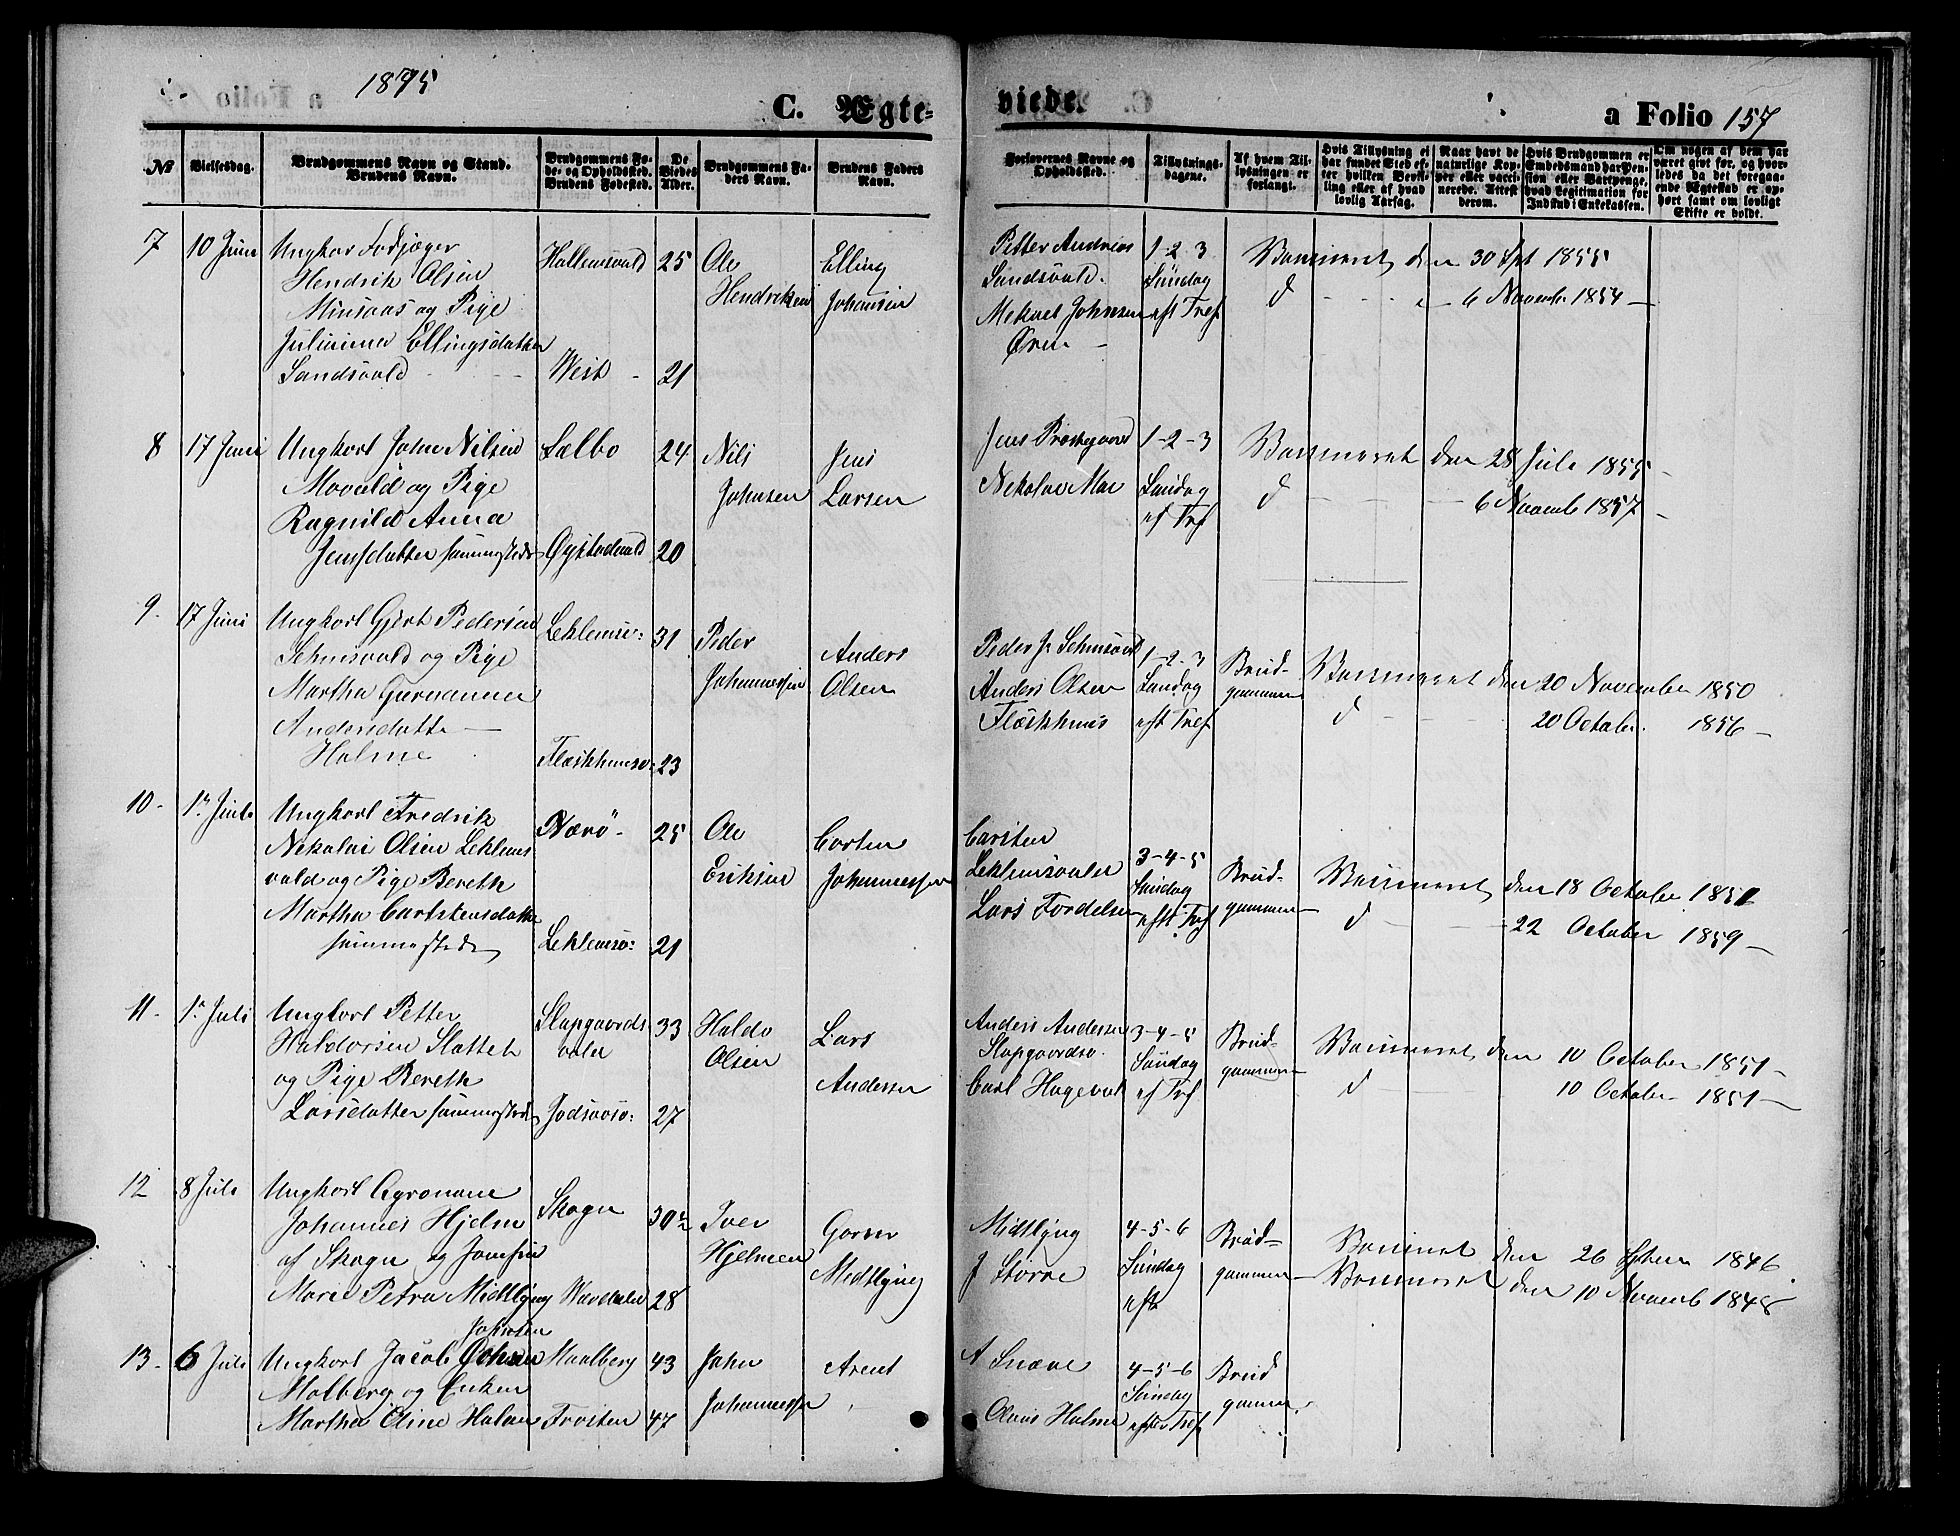 1875
C. Ægte-
viede.
a Folio 157
No
Vielsesdag.
Brudgommens Navn og Stand.
Brudens Navn.
Brudgommens Fø-
de- og Opholdssted.
Brudens Fødested.
De
Viedes
Alder.
Brudgommens Fa-
ders Navn.
Brudens Faders
Navn.
Forlovernes Navne og
Opholdssted.
Tillysnings-
dagene.
Af hvem Til-
lysningen er
forlangt.
Hvis Tillysning ei
har fundet Sted ef-
ter hvilken Bevil-
ling eller af hvad
lovlig Aarsag.
Naar havt de
naturlige Kop-
per eller vacci-
nerede. Attest
derom.
Hvis Brudgommen er
Embedsmand har Pen-
sion eller Vartpenge,
hvad Legitimation for
Indskud i Enkekassen.
Om nogen af dem har
været givt før, og hvor-
ledes da det foregaa-
ende Ægteskab er op-
hørt samt om lovligt
Skifte er holdt.
7 10 Juni Ungkar Fodjæger
Hendrik Olsen
Minsaas og Pige
Julianna Ellingsdatter
Sandsvald
Hallemsvald 25
West 21
Ole
Hendriksen
Elling
Johansen
Petter Andreas
Sandsvald.
Mekael Johnsen
Øren
1-2-3
Søndag
eft Tref
Vaccineret den 30 Spt 1855
d 6 Novembe 1854
8 17 Juni Ungkarl John Nilsen
Movald og Pige
Ragnild Anna
Jensdatter sammesteds
Sælbo 24
Øystadvald 20
Nils
Johnsen
Jens
Larsen
Jens Præstgaard
Nekolai Moe
1-2-3
Søndag
ef Tref
Vaccineret den 28 Juli 1855
d 6 Novemb 1857
9. 17 Juni Ungkarl Gjert Pedersen
Sehmsvald og Pige
Martha Gurnanna
Andersdatte
Holme
Leklemsv: 31
Fleskhusv: 23
Peder
Johannessen
Anders
Olsen
Peder J. Sehmsvald
Anders Olsen
Fleskhus
1-2-3
Søndag
eft Tref
Brud-
gommen
Vaccineret den 20 November 1850
d 20 October 1856
10. 1ste Juli Ungkarl Fredrik
Nekolai Olsen Leklems
vald og Pige Bereth
Martha Carlstensdatter
sammesteds
Nærö 25
Leklemsv: 21
Ole
Eriksen
Carsten
Johannessen
Carsten
Leklemsvalen
Lars Fordelsen
3-4-5
Søndag
efti Tref
Brud-
gommen
Vaccineret den 18 October 1851
d 22 October 1859
11. 1ste Juli Ungkarl Petter
Haldorsen Slatteh
og Pige Bereth
Larsdatter sammesteds
Slapgaards
valen 33
Jodsaasv: 27
Haldo
Olsen
Lars
Andersen
Anders Andersen
Slapgaardsv.
Carl Hagevald
3-4-5
Søndag
ef Tref
Brud-
gommen
Vaccineret den 10 October 1851
d 10 October 1851
12 8 Juli Ungkarl Agronom
Johannes Hjelm
af Skogn og Jomfru
Mari Petra Midtlyng
Skogn 30
Værdalen 28
Iver
Hjelmeen
Gorm
Medtlyng
Midtlyng
J Storve
4-5-6
Søndag
eft
Brud-
gommen
Vaccineret den 26 Sptem 1846
Vaccineret den 10 Novemb 1848
13. 6 Juli Ungkarl Jacob Johnsen
Molberg og Enken
Martha Oline Halm
Maalberg 43
Frosten 47
John
Johannessen
Arent
A Snæve
Olaus Halmen
4-5-6
Søndag
efter Tref
Brud
gommen